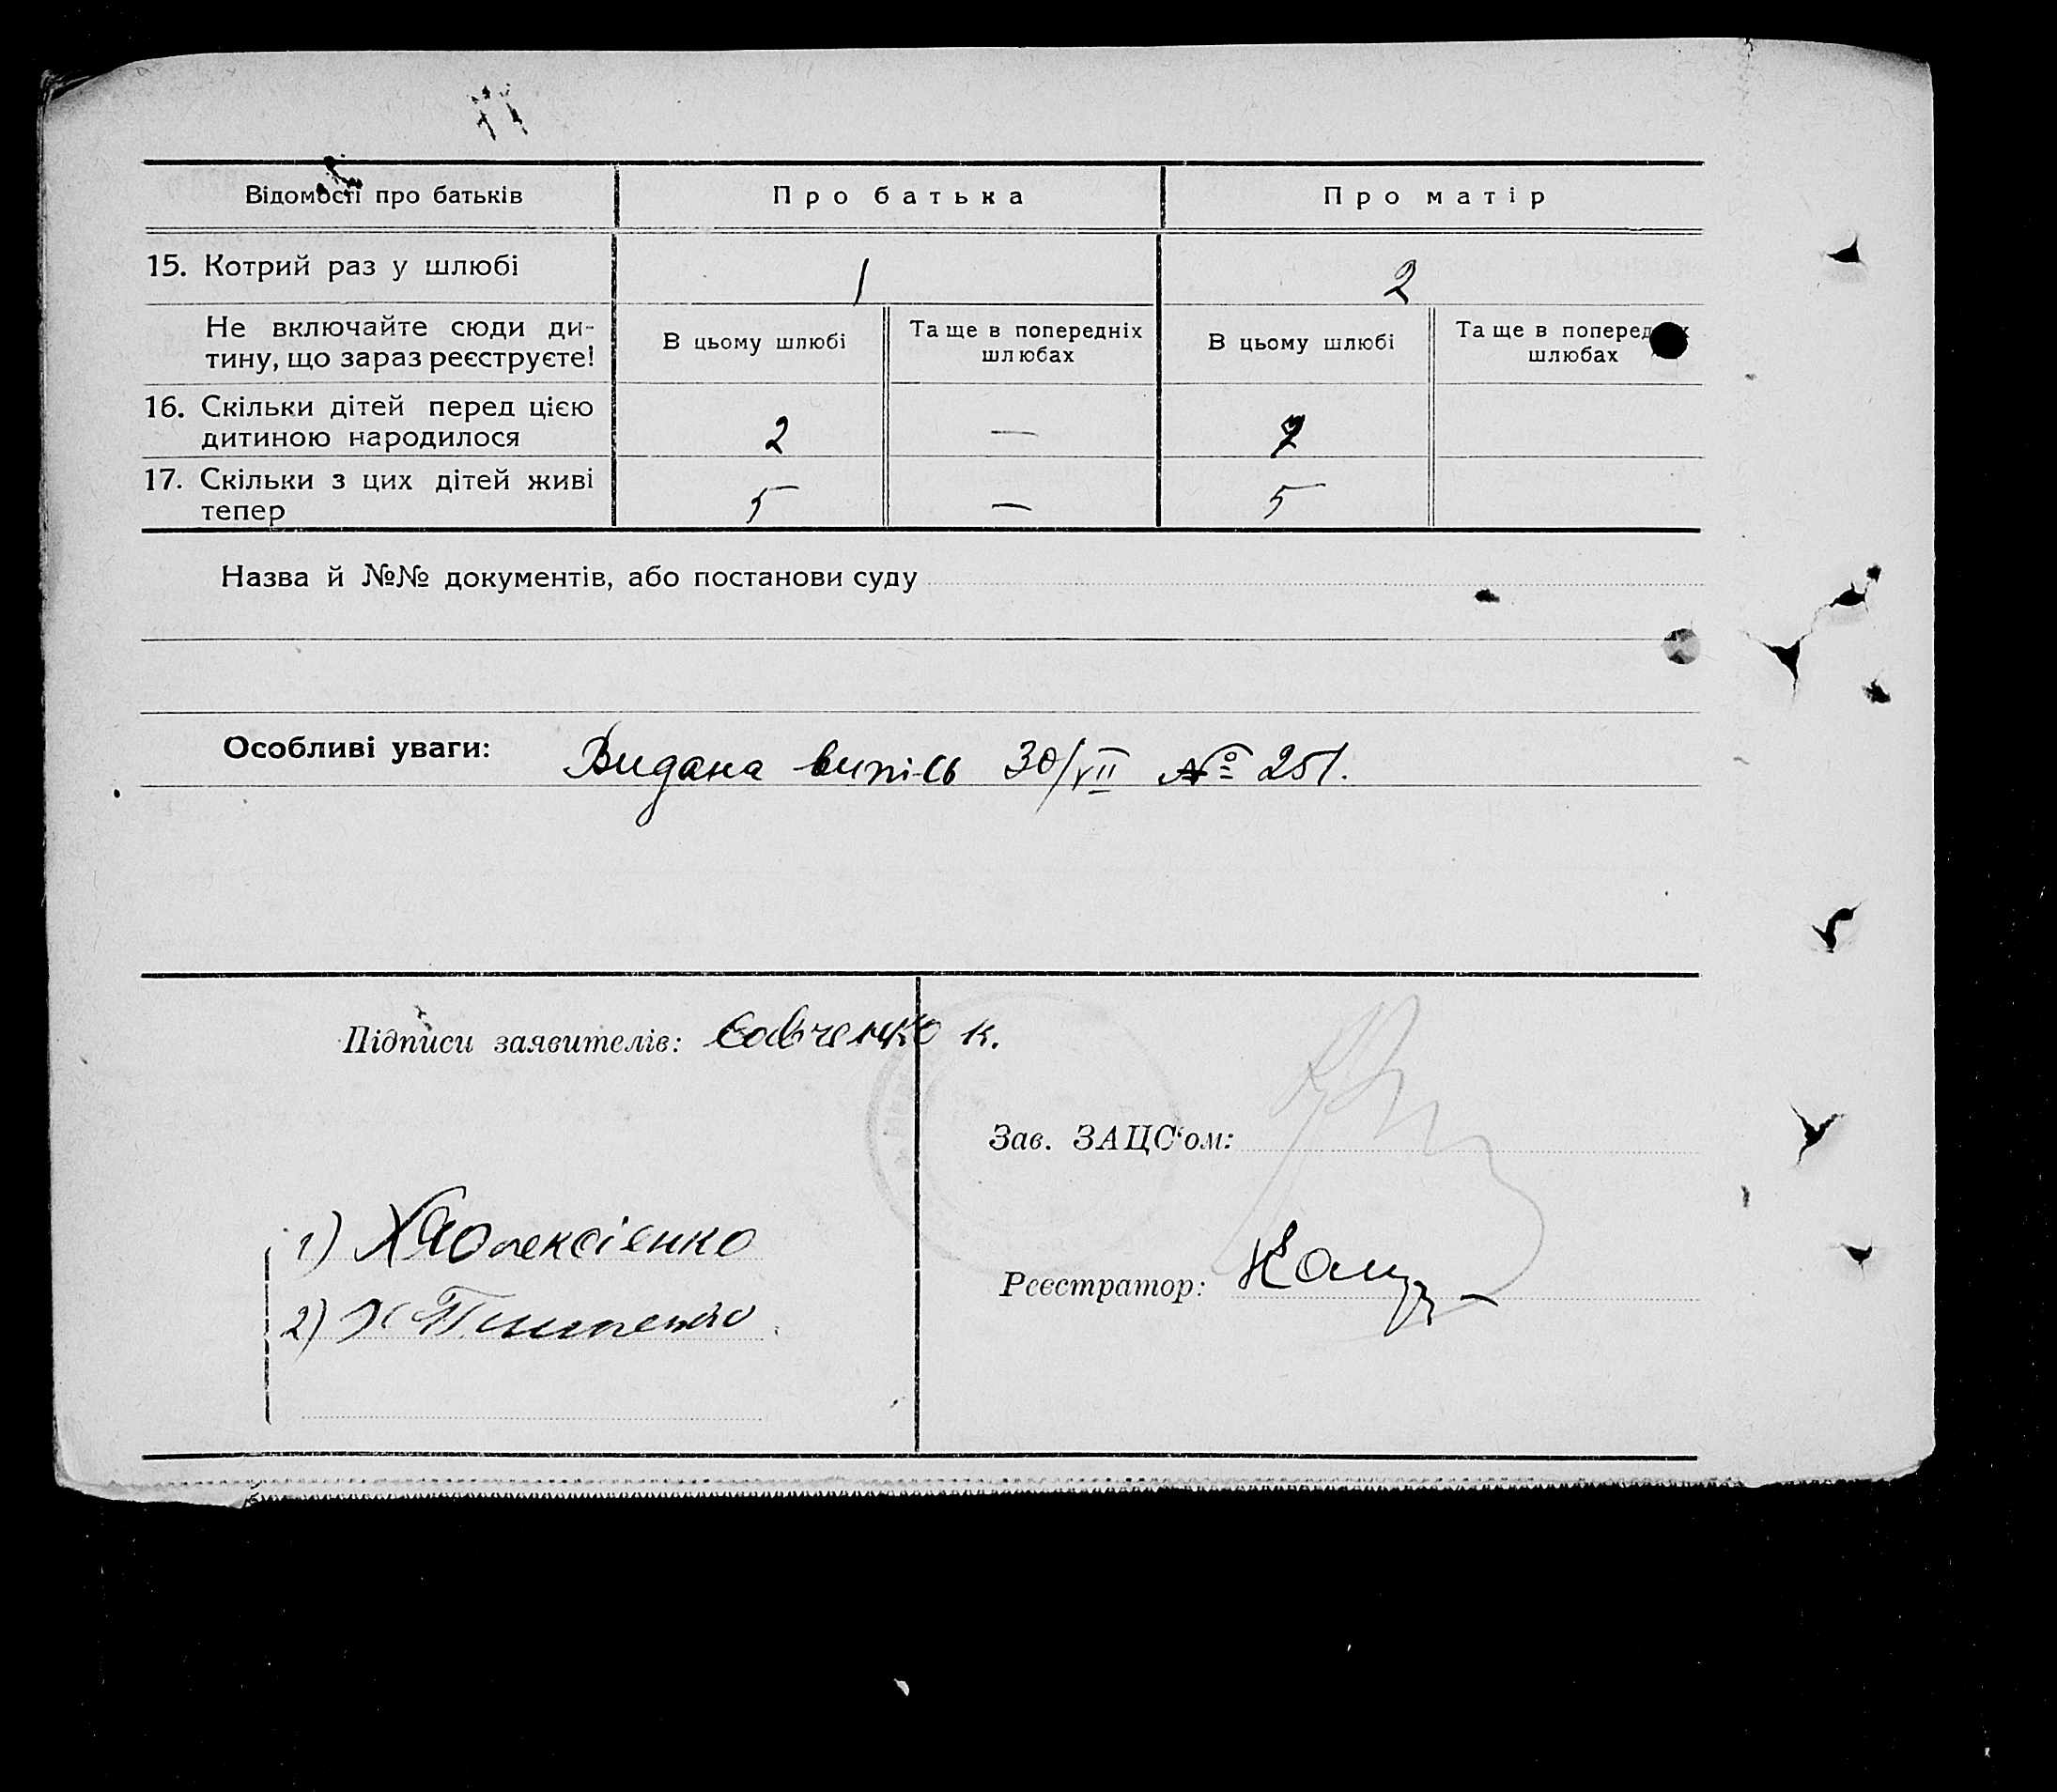 Відомості про батьків Про батька Про матір
15. Котрий раз у шлюбі 1 2
Не включайте сюди ди-
тину, що зараз реєструєте!
В цьому шлюбі Та ще в попередніх В цьому шлюбі Та ще в попередніх
шлюбах шлюбах
16. Скільки дітей перед цією
дитиною народилося 2 —
17. Скільки з цих дітей живі
тепер 5 — 5
Назва й №№ документів, або постанови суду
Особливі уваги: Видана випись 30/VII № 251.
Підписи заявителів: Савченко К.
Зав. ЗАЦС'ом:
1) Олексієнко
Реєстратор:
2)